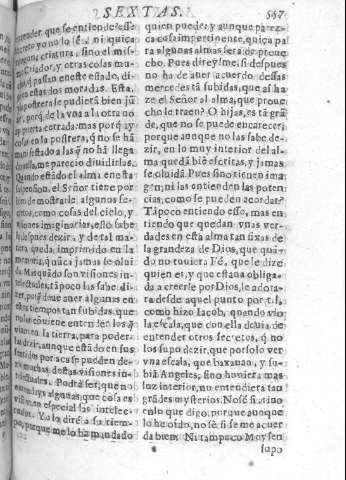 SEXTAS.
547
tender, que se entiende esse
secreto yo no lo sé, ni quiça
ninguna criatura, sino el mis-
mo Criador, y otras cosas mu-
chas q̃ passan en este estado, di-
go en estas dos moradas. Esta,
y la postrera se pudierã bien jũ
tar, porq̃ de la vna a la otra no
ay puerta cerrada: mas porq̃ ay
cosas en la postrera, q̃ no se hã
manifestado a las q̃ no hã llega
do a ella, me parecio diuidirlas.
Quando estã do el alma en esta
suspension, el Señor tiene por
bien de mostrarle algunos se-
cretos, como cosas del cielo, y
visiones imaginarias, esto sabe
lo despues dezir, y de tal ma-
nera queda imprimido en la
memoria, q̃ nũca jamas se olui-
da. Mas quãdo son visiones in-
telectuales, tãpoco las sabe di-
zir, porq̃ deue auer algunas en
estos tiempos tan subidas, que
no las conuiene entender los q̃
viuen en la tierra, para poder-
las dezir, aunque estãdo en sus
sentidos por aca se pueden de-
zir muchas destas visiones in-
telectuales. Podrà ser, que no
entendays algunas, que cosa es
vision, en especial las intelec-
tuales. Yo lo diré a su tiem-
po, porque me lo ha mandado
quien puede: y aunque parez-
ca cosa impertinente, quiça pa
ra algunas almas serà de proue
cho. Pues direyſme, si despues
no ha de auer acuerdo dessas
mercedes tã subidas, que ai ha
ze el Señor al alma, que proue
cho le traen? O hijas, es tã grã
de, que no se puede encarecer;
porque aunque no las sabe de-
zir, en lo muy interior del al-
ma quedã biẽ escritas, y jamas
se oluidã. Pues sino tienen ima
gen, ni las entienden las poten
cias, como se pueden acordar?
Tãpoco entiendo esso, mas en
tiendo que quedan vnas ver-
dades en esta alma tan fixas de
la grandeza de Dios, que quã-
do no touiera Fé, que le dize
quien es, y que està obliga-
da a creerle por Dios, le adota-
ra desde aquel punto por tal,
como hizo Iacob, quando vio
la escala, que con ella deuia de
entender otros secretos, q̃ no
los supo dezir, que por solo ver
vna escala, que baxauan, y su-
biã Angeles, sino huuiera mas
luz interior, no entendiera tan
grandes mysterios. No sé si atino
en lo que digo, porque aunque
lo he oido, no sé si se me acuer
da bien. Ni tampoco Moysen
supo